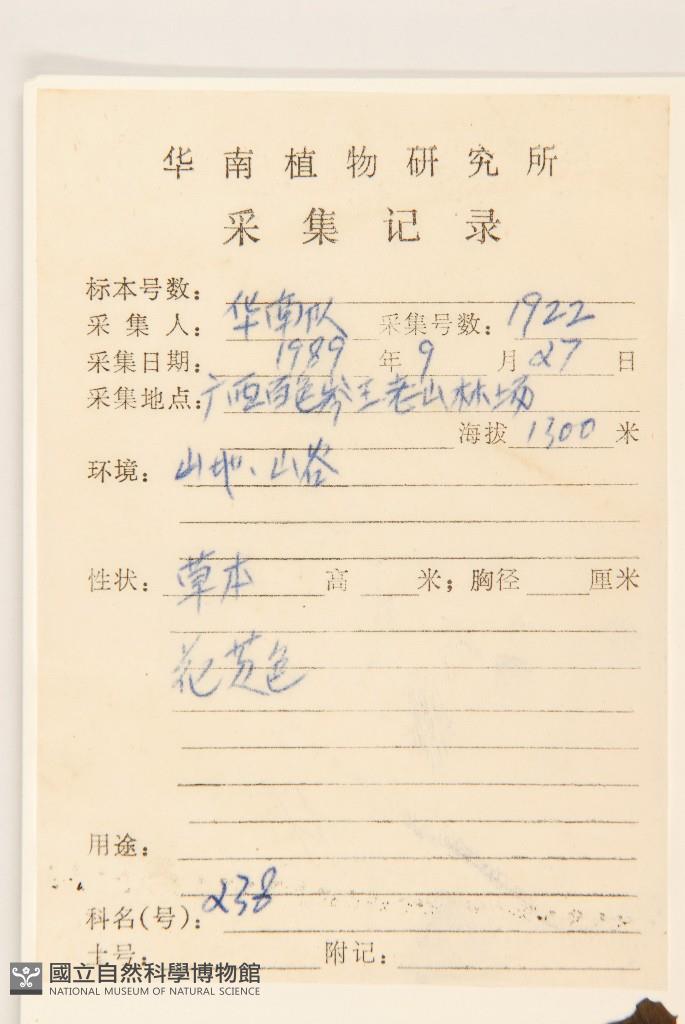 华南植物研究所
采集记录
标本号数：
采集人：华南队 采集号数：1922
采集日期：1989年9月27日
采集地点：广西百色岑王老山林场
海拔1300米
环境：山地、山谷
性状：草本 高 米；胸径 厘米
花黄色
用途：
科名(号)：238
土号： 附记：
國立自然科學博物館
NATIONAL MUSEUM OF NATURAL SCIENCE